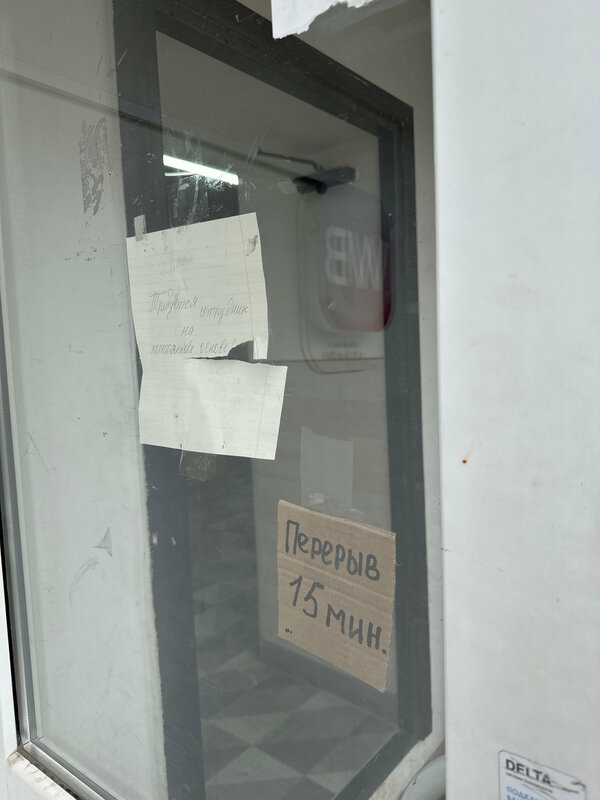 WB
Требуется сотрудник
на
постоянной основе!
Перерыв
15 мин.
DELTA